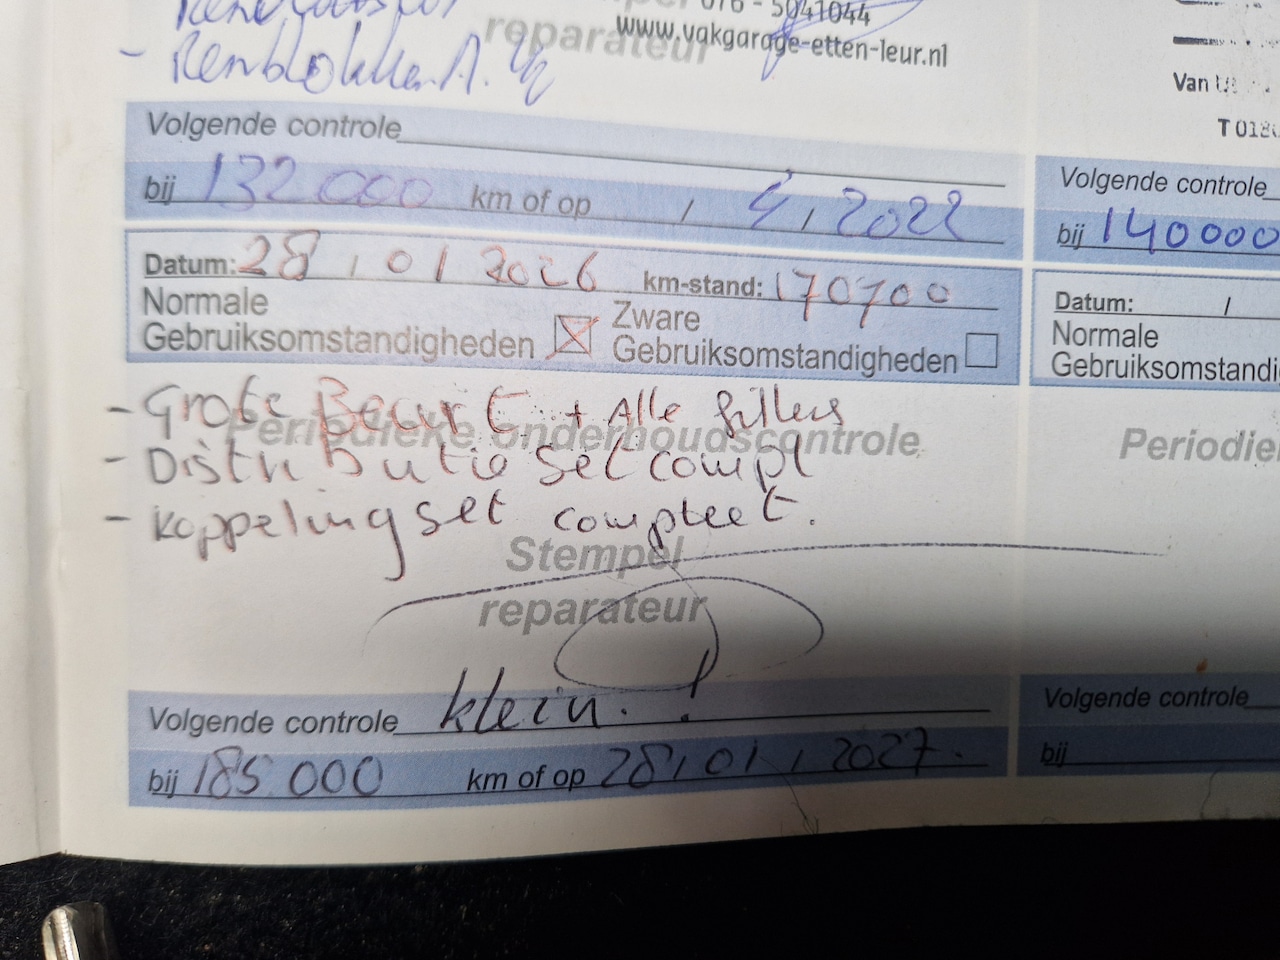 - Remblokken A.
reparateur
076 - 5041044
www.vakgarage-etten-leur.nl
Volgende controle
bij 132 000 km of op / 4 / 2022
Datum: 28 / 01 2026 km-stand: 170700
Normale Gebruiksomstandigheden Zware Gebruiksomstandigheden
Periodieke onderhoudscontrole
- Grote Beurt + Alle fillers
- Distributie Set compl
- Koppeling set compleet.
Stempel
reparateur
Volgende controle klein. !
bij 185 000 km of op 28 / 01 / 2027.
Van
T 018
Volgende controle
bij 140000
Datum: /
Normale
Gebruiksomstandi
Periodie
Volgende controle
bij